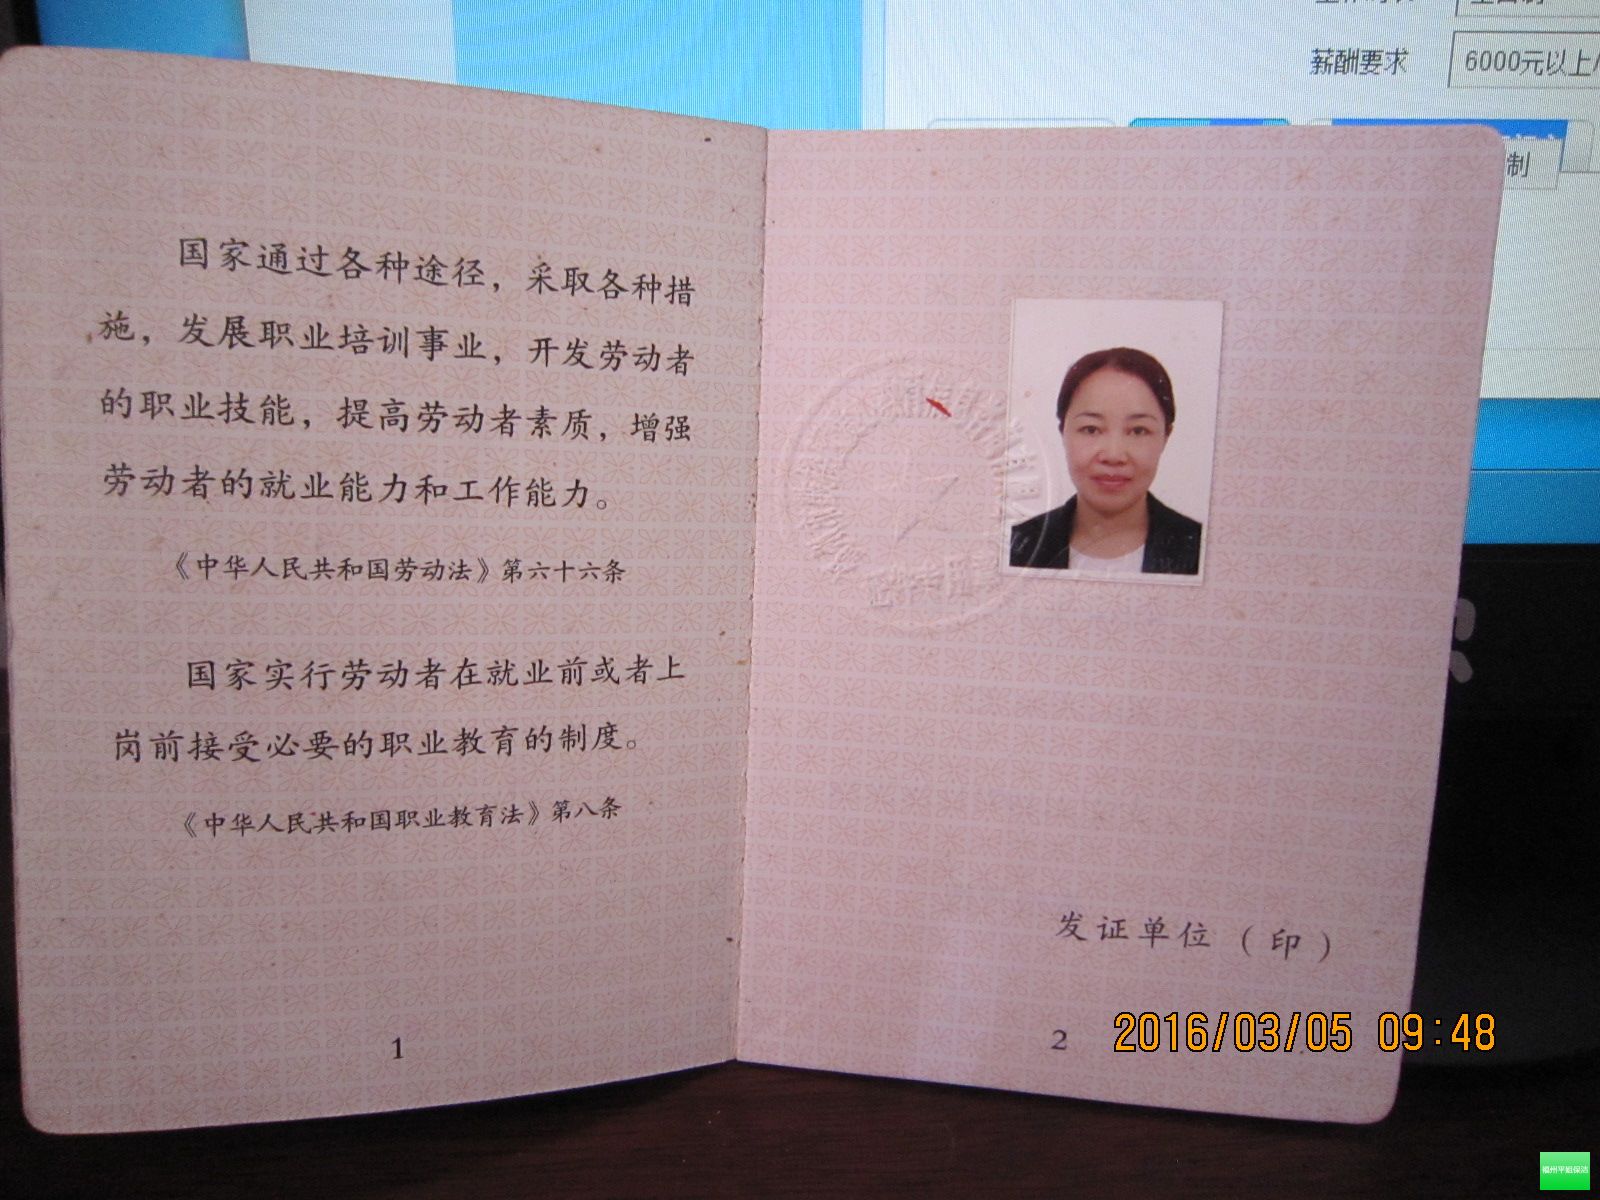 薪酬要求
6000元以上/
制
国家通过各种途径，采取各种措
施，发展职业培训事业，开发劳动者
的职业技能，提高劳动者素质，增强
劳动者的就业能力和工作能力。
《中华人民共和国劳动法》第六十六条
国家实行劳动者在就业前或者上
岗前接受必要的职业教育的制度。
《中华人民共和国职业教育法》第八条
1
发证单位（印）
2
2016/03/05 09:48
福州平姐保洁